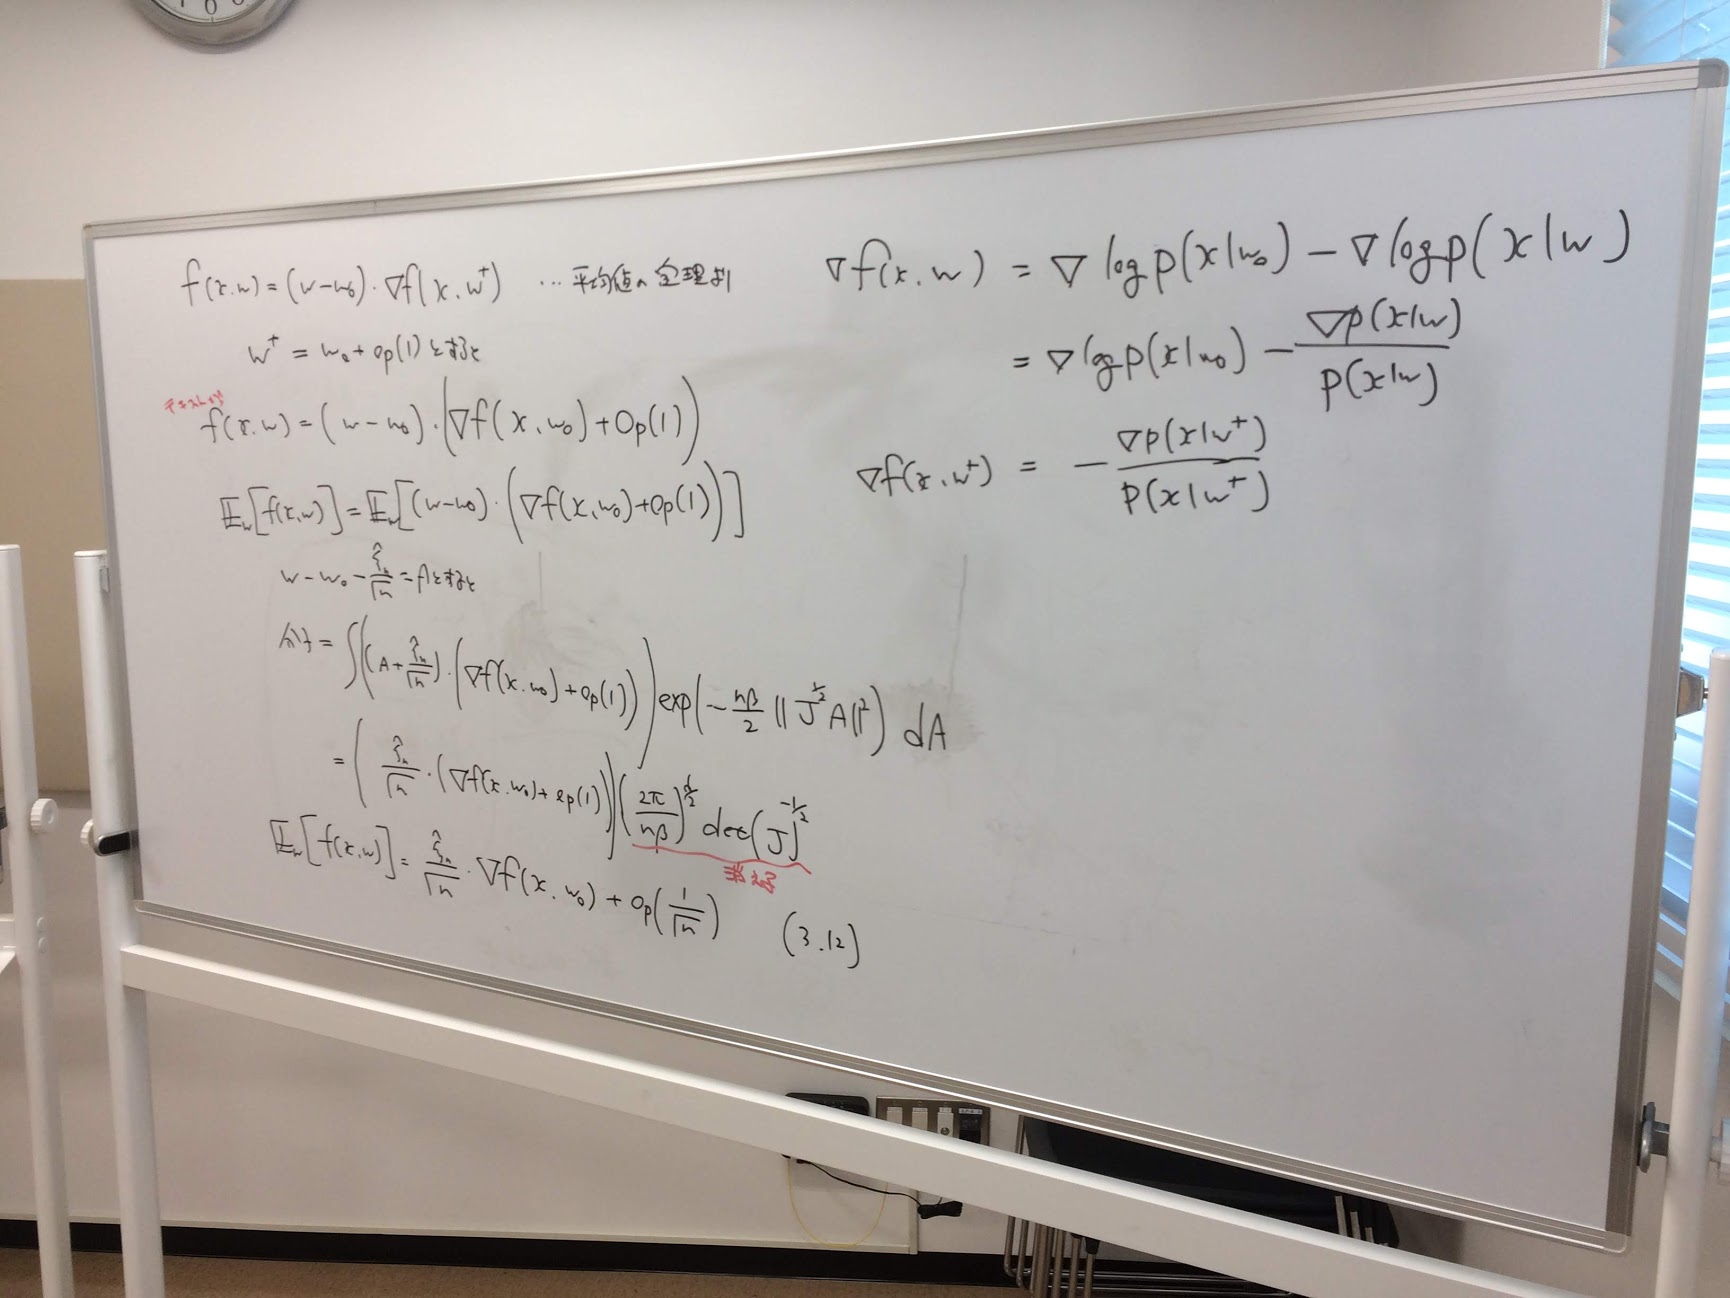 f(x,w)=(w-w₀)・∇f(x,w⁺) …平均値の定理より
w⁺=w₀+op(1)とすると
f(x,w)=(w-w₀)・(∇f(x,w₀)+Op(1))
𝔼w[f(x,w)]=𝔼w[(w-w₀)・(∇f(x,w₀)+op(1))]
w-w₀-ξ̂n/√n=Aとすると
分子=∫((A+ξ̂n/√n)・(∇f(x,w₀)+op(1)))exp(-nβ/2 ||J^{1/2}A||²) dA
=(ξ̂n/√n・(∇f(x,w₀)+op(1)))(2π/nβ)^{d/2} det(J)^{-1/2}
𝔼w[f(x,w)]=ξ̂n/√n・∇f(x,w₀)+op(1/√n) (3.12)
∇f(x,w) = ∇log p(x|w₀) - ∇log p(x|w)
= ∇log p(x|w₀) - ∇p(x|w)/p(x|w)
∇f(x,w⁺) = - ∇p(x|w⁺)/p(x|w⁺)